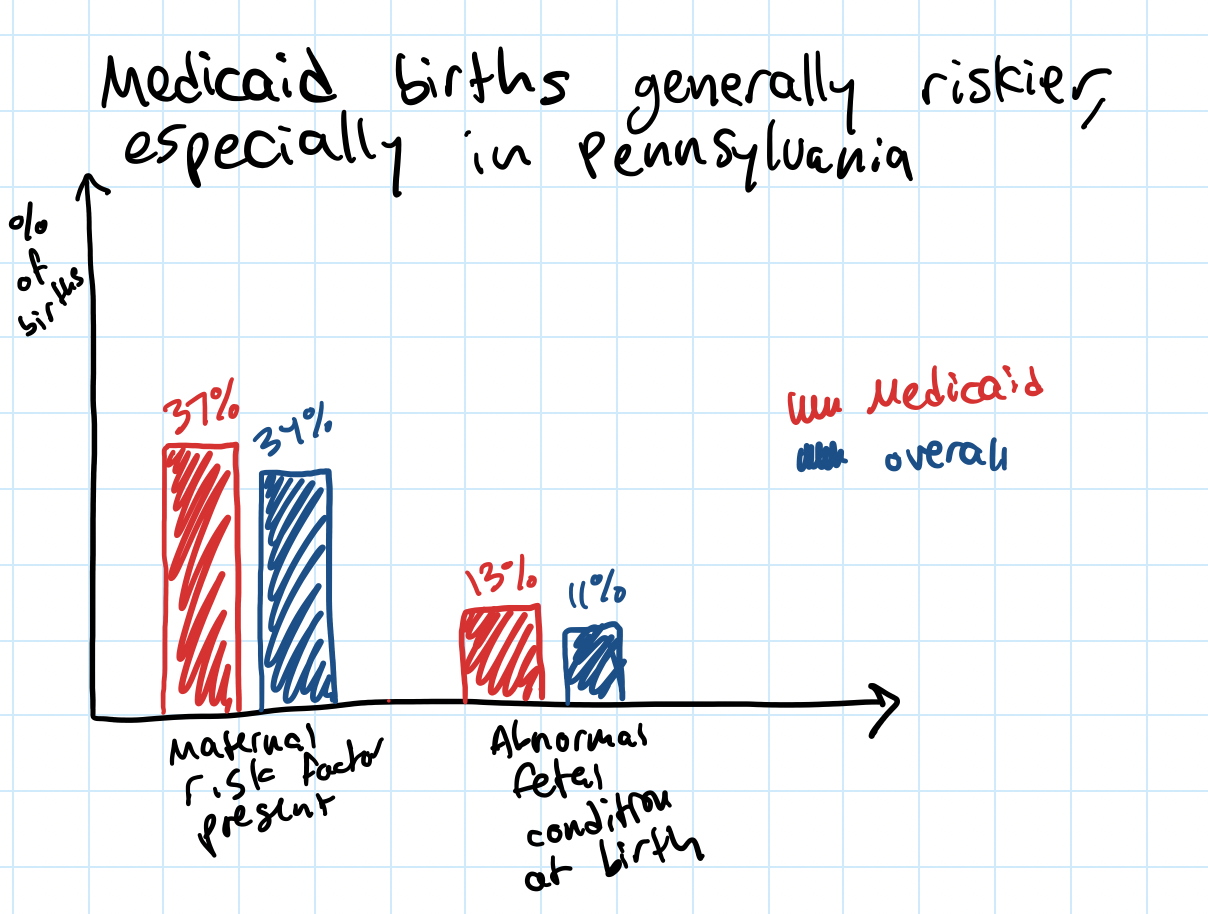 Medicaid births generally riskier,
especially in Pennsylvania
%
of
births
37%
34%
13%
11%
Medicaid
overall
Maternal
risk factor
present
Abnormal
fetal
condition
at birth